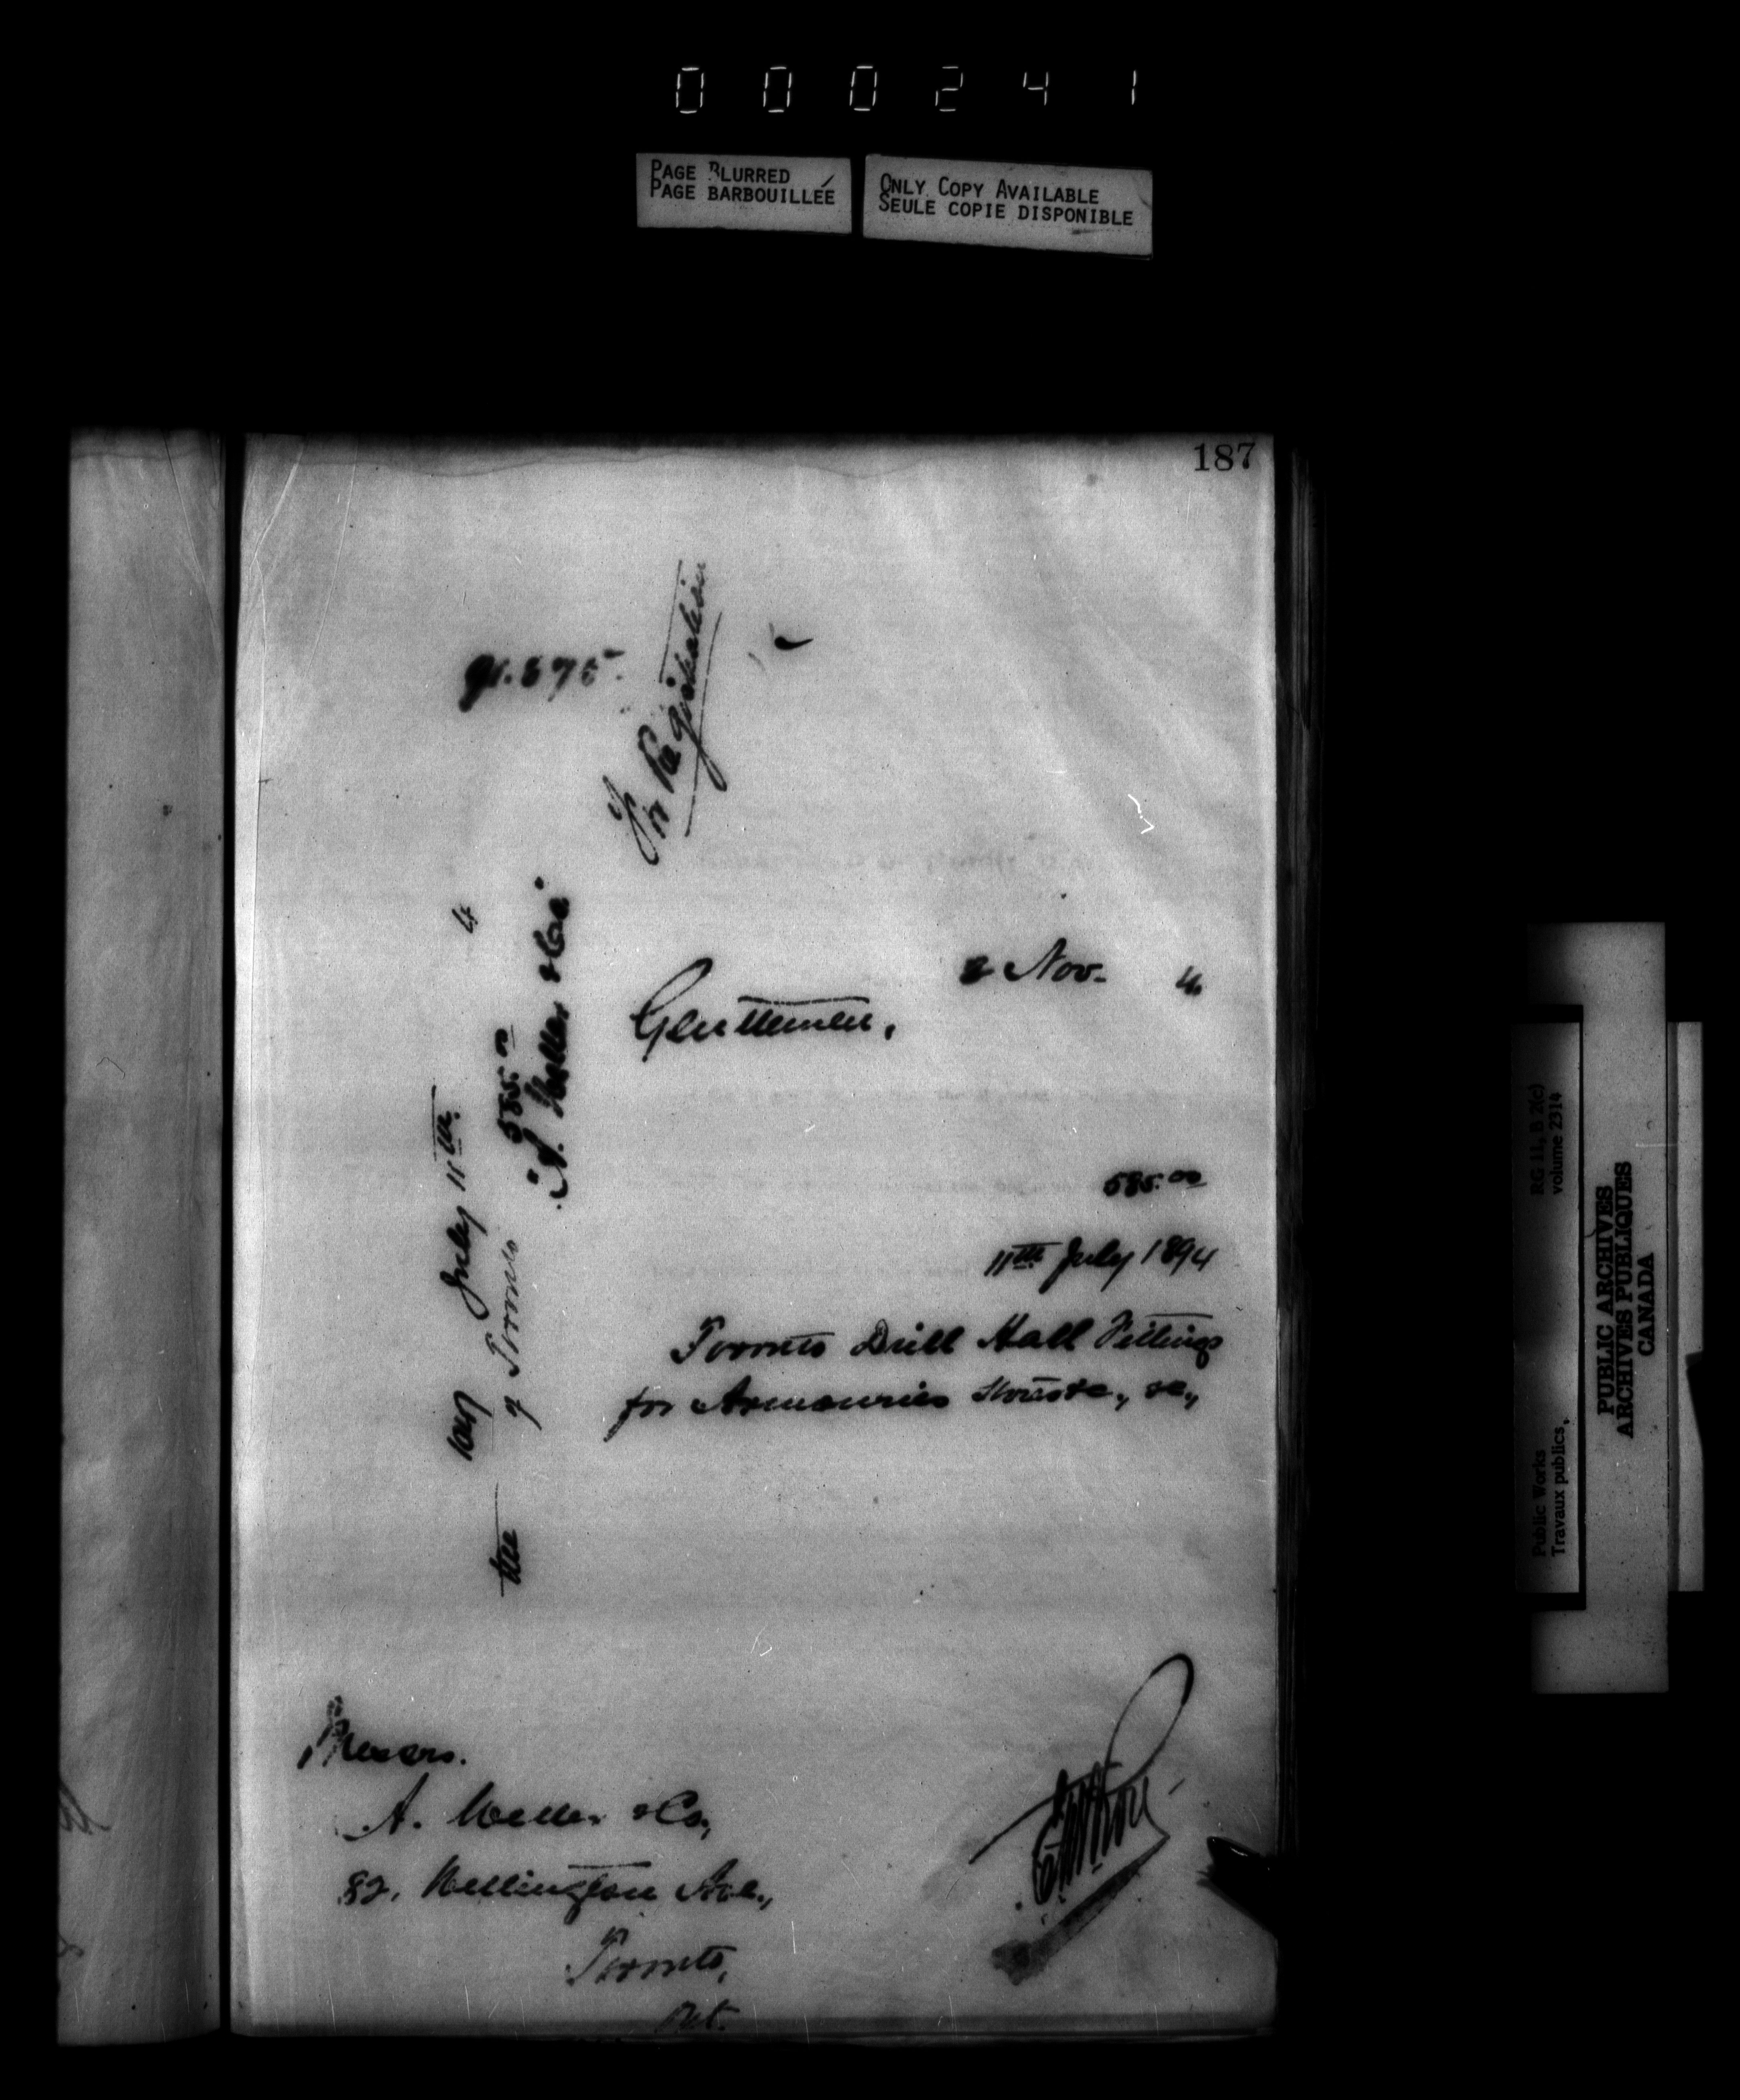 000241
PAGE BLURRED
PAGE BARBOUILLÉE
ONLY COPY AVAILABLE
SEULE COPIE DISPONIBLE
187
For Registration
2 Nov. 4
Gentlemen,
585.00
11th July 1894
Toronto Drill Hall Fittings
for Armouries &c.,
July 11th 4
of Toronto 585.00
& Co."
the
Messrs.
A. & Co.,
82, Wellington Ave.,
Toronto,
Ont.
RG 11, B 2(c)
volume 2314
Public Works
Travaux publics,
PUBLIC ARCHIVES
ARCHIVES PUBLIQUES
CANADA